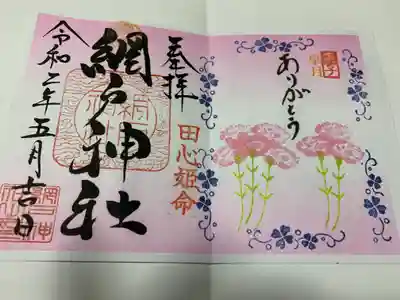 ありがとう
奉拝
田心姫命
網戸神社
令和二年五月吉日